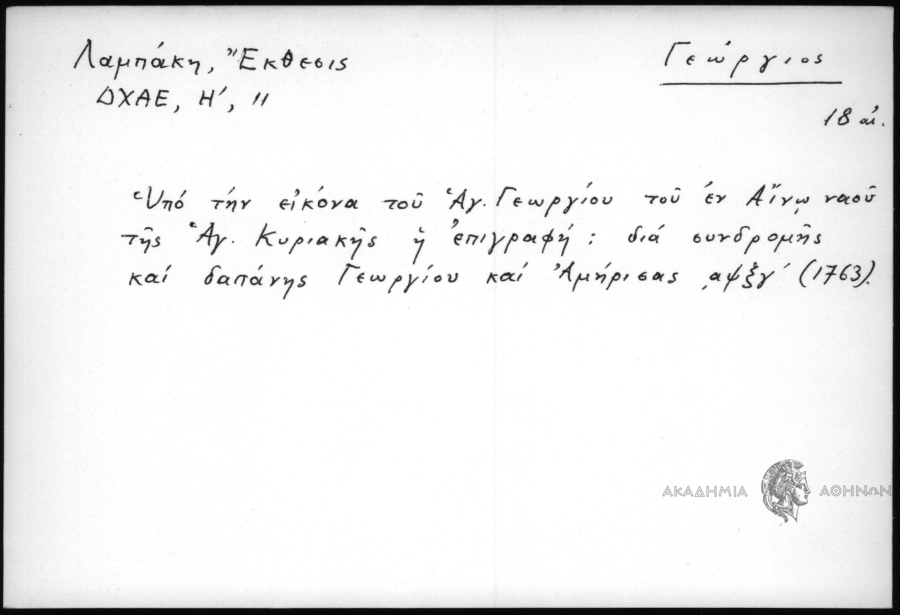 Λαμπάκη, Ἔκθεσις
ΔΧΑΕ, Η', 11
Γεώργιος
18 αἰ.
Ὑπό τήν εἰκόνα τοῦ Ἁγ. Γεωργίου τοῦ ἐν Αἴνῳ ναοῦ
τῆς Ἁγ. Κυριακῆς ἡ ἐπιγραφή : διά συνδρομῆς
καί δαπάνης Γεωργίου καί Ἀμήρισας ͵αψξγ' (1763).
ΑΚΑΔΗΜΙΑ ΑΘΗΝΩΝ